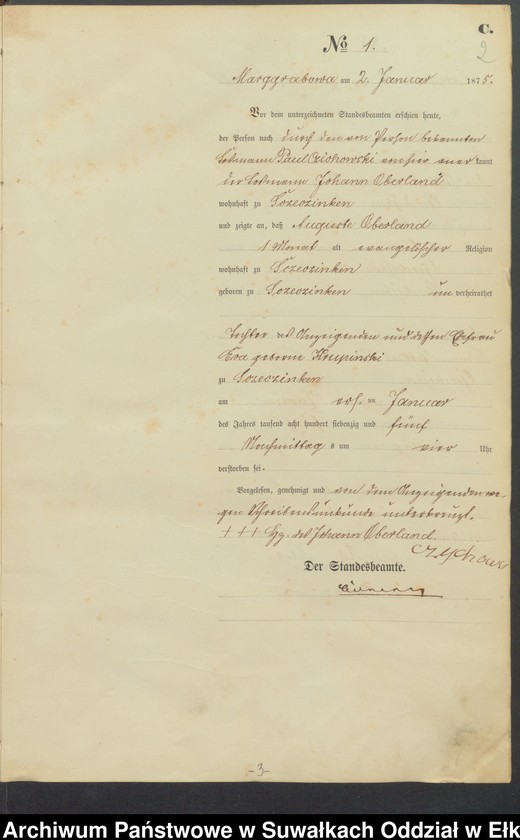 C.
2
No 1.
Marggrabowa am 2. Januar 1875.
Vor dem unterzeichneten Standesbeamten erschien heute,
der Person nach durch den von Person bekannten
Losmann Paul Czichowski von hier aner kannt
der Losmann Johann Oberland
wohnhaft zu
und zeigte an, daß Auguste Oberland
1 Monat alt evangelischer Religion
wohnhaft zu
geboren zu un verheirathet
Tochter des Anzeigenden und dessen Ehefrau
Eva geborne Krupinski
zu
am ersten Januar
des Jahres tausend acht hundert siebenzig und fünf
Nachmittags um vier Uhr
verstorben sei.
Vorgelesen, genehmigt und von dem Anzeigenden we-
gen Schreibensunkunde unterkreuzt.
+++ Hz. des Johann Oberland.
Der Standesbeamte.
-3-
Archiwum Państwowe w Suwałkach Oddział w Ełk